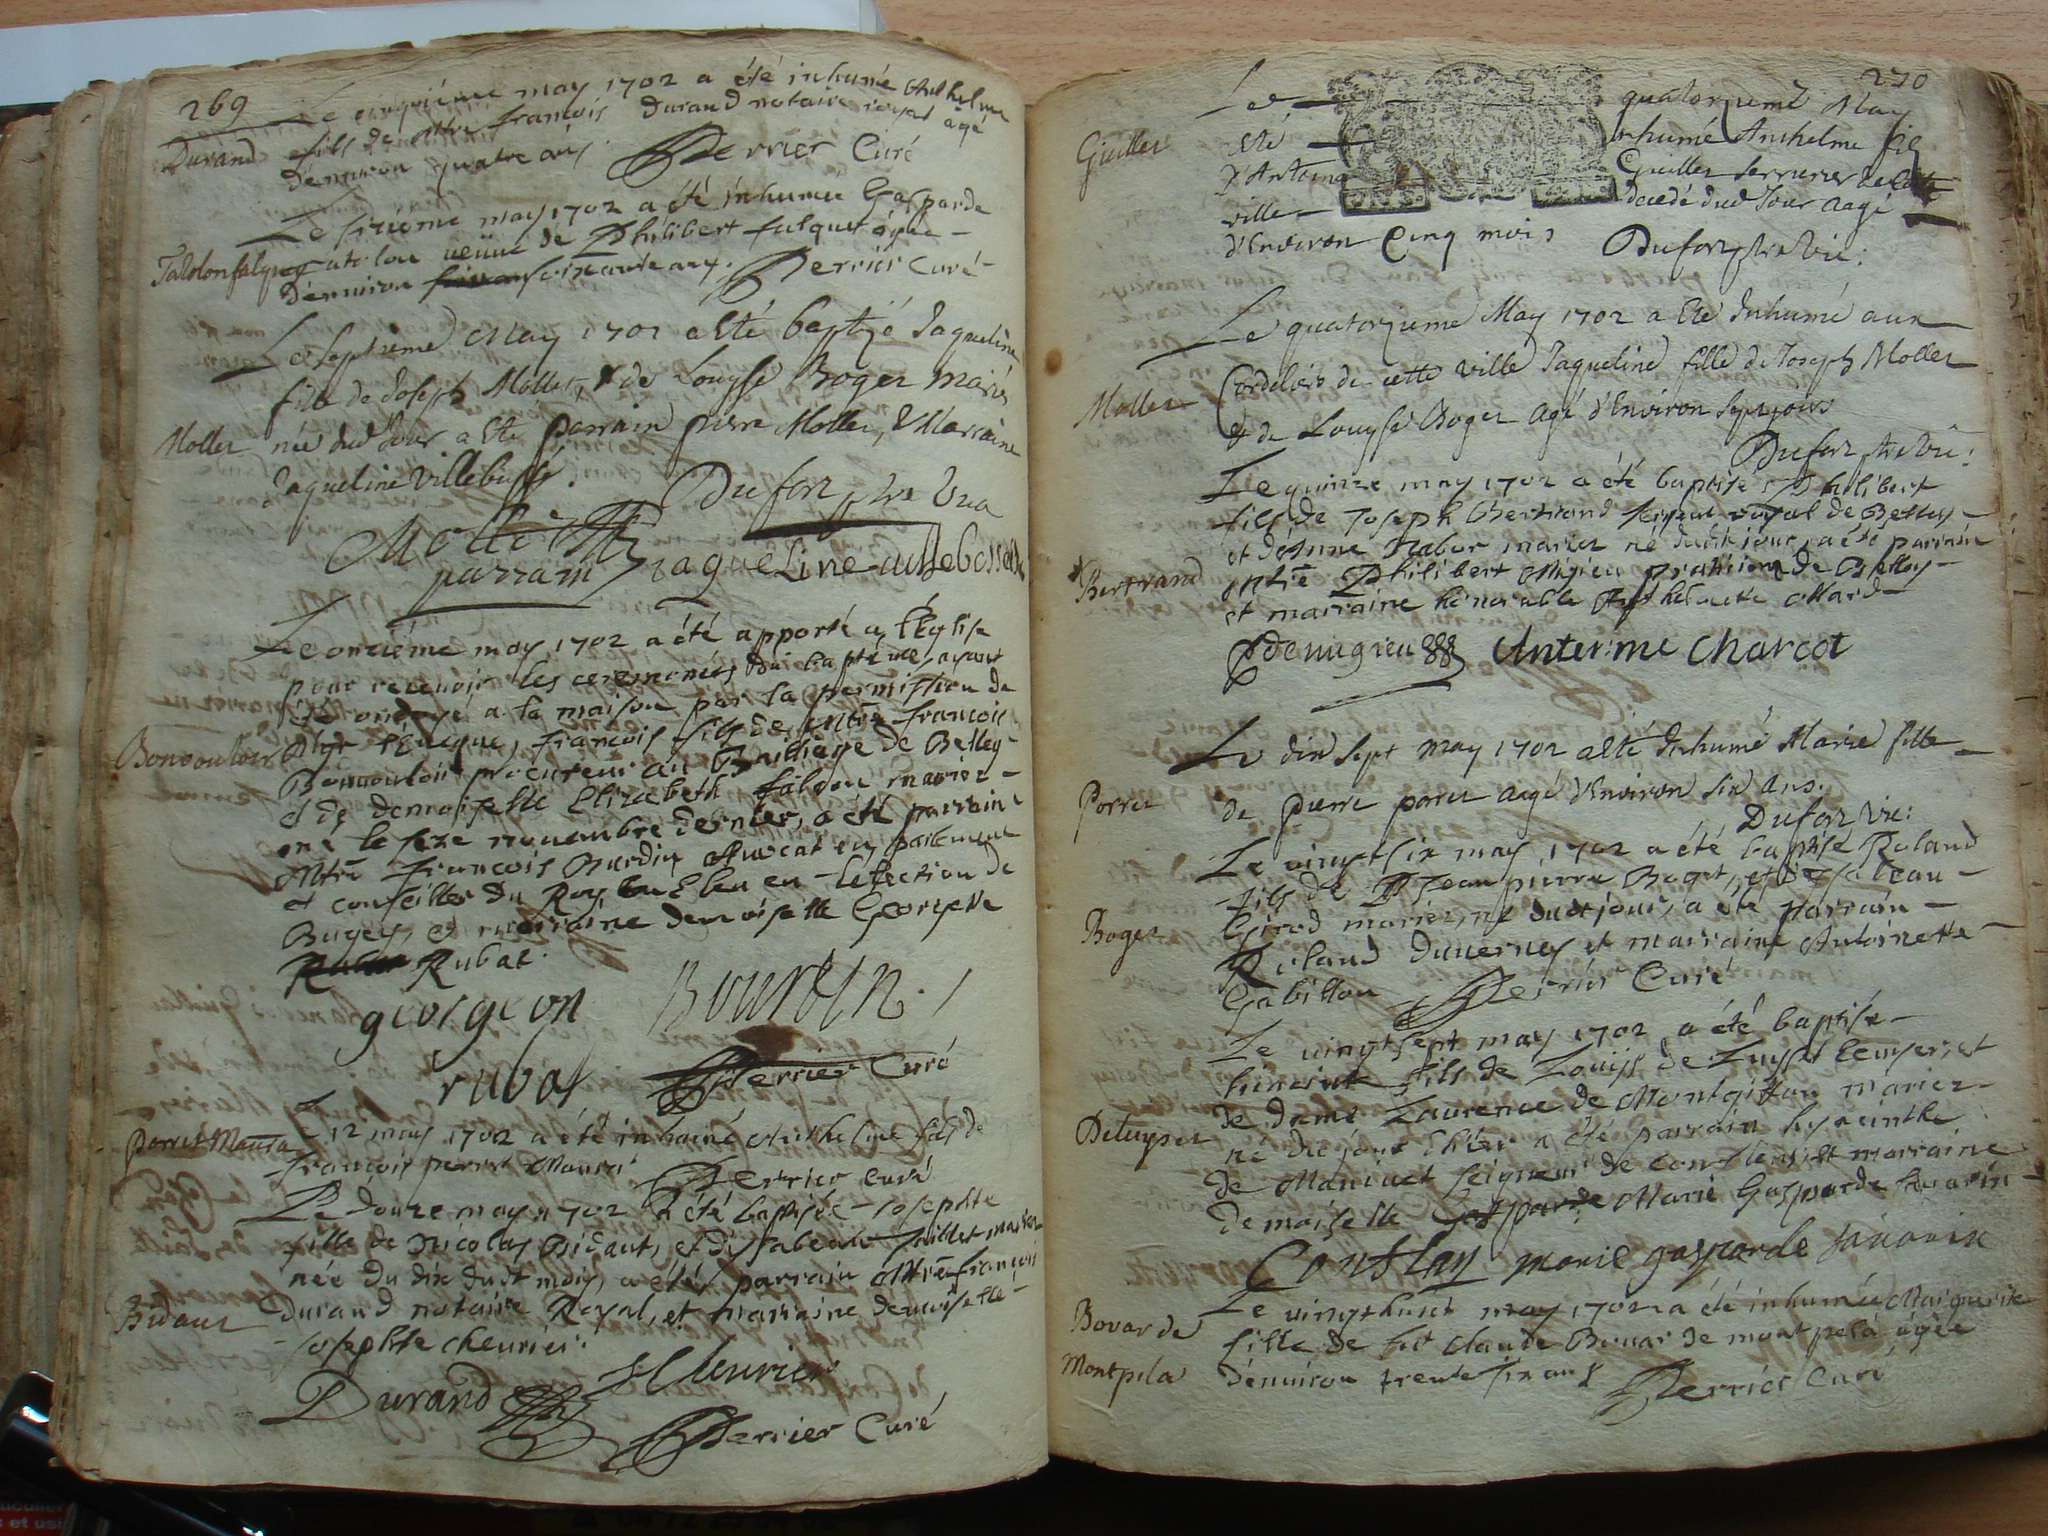 269
Le cinquiéme may 1702 a été inhumé Anthelme
Durand fils de Mtre françois Durand notaire royal agé
d'environ quatre ans. Perrier Curé
Le sixiéme may 1702 a été inhumée Gasparde
Talolon veüve de Philibert fulquet agée
d'environ soixante ans. Perrier Curé
Le septiemé May 1702 a esté baptizé Jaqueline
fille de Joseph Mollet, & de Louyse Boger mariés
Mollet née dud Jour a esté parrain pierre Mollet, & Marraine
Jaqueline Villebusse.
Dufor ptre Vic
Mollet
parrain Jaqueline
Le onziéme may 1702 a été apporté a l'Eglise
pour recevoir les ceremonies du baptéme, ayant
été ondoyé a la maison par la permission de
Mgr l'Eveque, françois fils de Mtre françois
Bonvouloir Bonvouloir procureur au Bailliage de Belley
et de demoiselle Elizabeth mariez
né le seze novembre dernier, a été parrain
Mtre françois Bourdin Advocat en parlement
et conseiller du Roy Esleu en l'election de
Bugey, et marraine demoiselle Georgette
Rubat.
georgeon Bourdin
rubat Perrier Curé
Perret Mansa Le 12 may 1702 a été inhumé Anthelme fils de
françois perret Mansa. Perrier curé
Le douze may 1702 a été baptisée Josephte
fille de Nicolas Bidaut, et d'ysabeau mariez
née du dix dudt mois, a été parrain Mtre françois
Bidaut Durand notaire Royal, et marraine demoiselle
Josephte chevrier.
Durand J Chevrier
Perrier Curé
270
Le quatorzieme May
Guillet esté inhumé Anthelme fils
D'Antoine Guillet serrurier de cette
ville decedé dud Jour aagé
d'Environ Cinq mois Dufor ptre Vic:
Le quatorzieme May 1702 a esté Inhumé aux
Mollet Cordeliers de cette ville Jaqueline fille de Joseph Mollet
& de Louyse Boger agé d'Environ sept jours
Dufor ptre Vic:
Le quinze may 1702 a été baptisé Philibert
fils de Joseph Bertrand sergent royal de Belley
Bertrand et d'Anne mariez né dudit jour, a été parrain
Mtre Philibert Migieu praticien de Belley
et marraine honorable
Demigieu Anterme Charcot
Le dix sept may 1702 a esté Inhumé Marie fille
Perret de pierre perret aagé d'Environ six ans.
Dufor Vic:
Le vingt six may 1702 a été baptisé Roland
fils de Jean pierre Boget, et d'ysabeau
Boget Girod mariez, né dudt jour, a été parrain
Roland Duverney et marraine Antoinette
Gabillon Perrier Curé
Le vingt sept may 1702 a été baptisé
hiacinte fils de Louys de Luyset Ecuyer, et
de dame Laurence de Montgiffon mariez
Deluyset né du jour d'hier a été parrain hyacinthe
de Maniuet seigneur de conflens, et marraine
demoiselle Marie Gasparde
Conflan marie gasparde
Le vingthuict may 1702 a été inhumée Marguerite
Bovar de fille de feu claude Bovar de montpela agée
Montpela d'environ trente six ans Perrier Curé